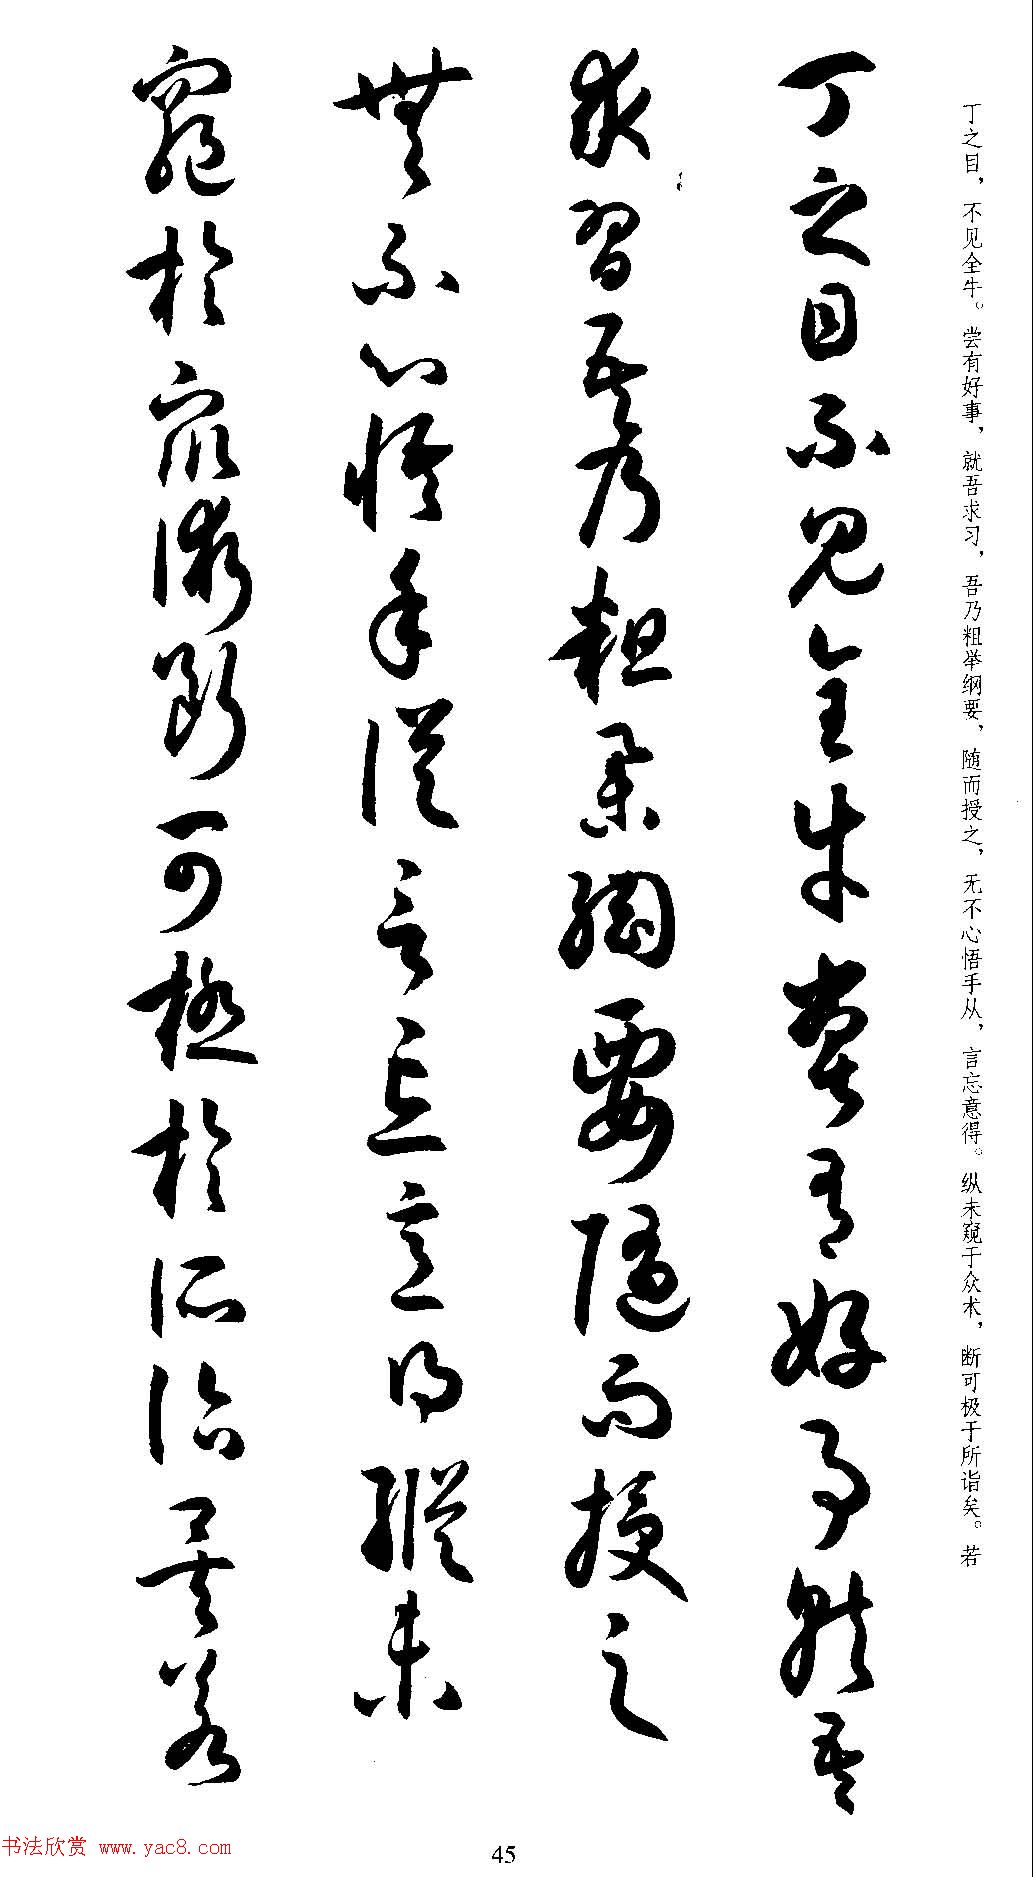 丁之目，不见全牛。尝有好事，就吾求习，吾乃粗举纲要，随而授之，无不心悟手从，言忘意得。纵未窥于众术，断可极于所诣矣。若
丁之目不見全牛嘗有好事就吾
求習吾乃粗舉綱要隨而授之
無不心悟手從言忘意得縱未
窺於眾術斷可極於所詣矣若
书法欣赏 www.yac8.com
45